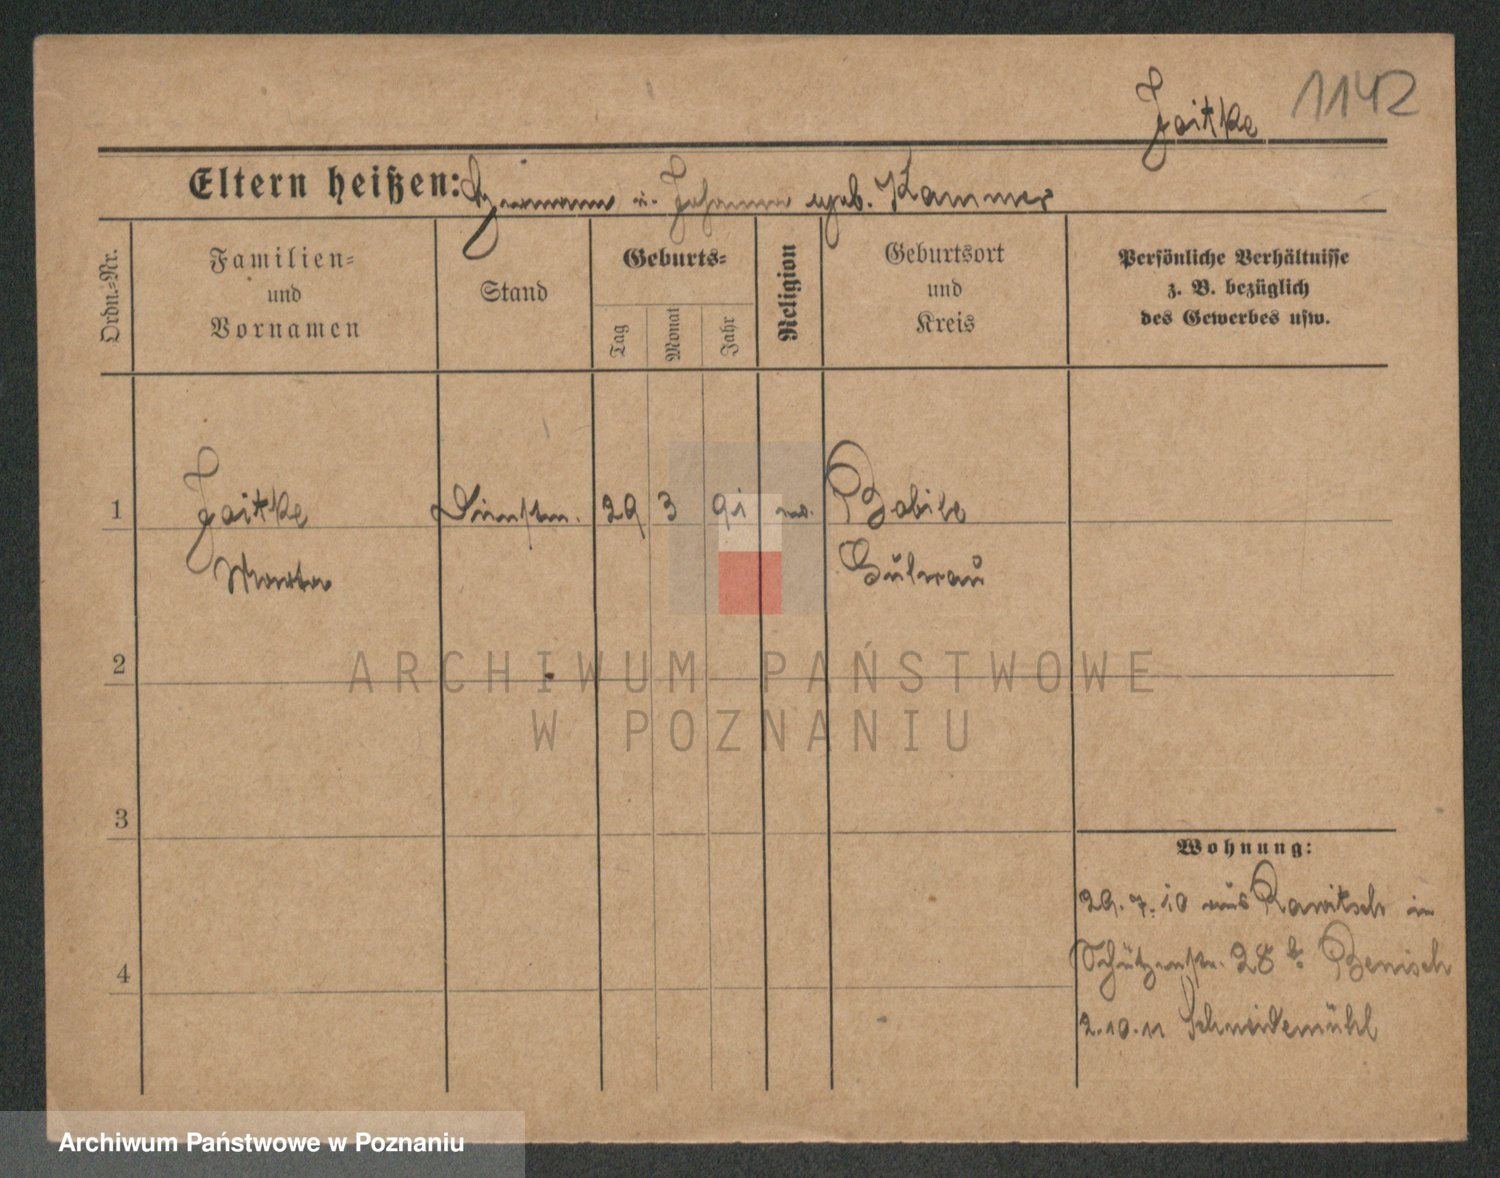 1142
Jaitke
Eltern heißen: Hermann u. Johanna geb. Kammer
Ordn.-Nr.
Familien-
und
Vornamen
Stand
Geburts-
Tag
Monat
Jahr
Religion
Geburtsort
und
Kreis
Persönliche Verhältnisse
z. B. bezüglich
des Gewerbes usw.
1 Jaitke Dienstm. 29 3 91 Bobile
Martha Guhrau
2
3
4
Wohnung:
29.7.10 aus Rawitsch in
Schützenstr. 28 b. Benisch
2.10.11 Schneidemühl
ARCHIWUM PAŃSTWOWE
W POZNANIU
Archiwum Państwowe w Poznaniu